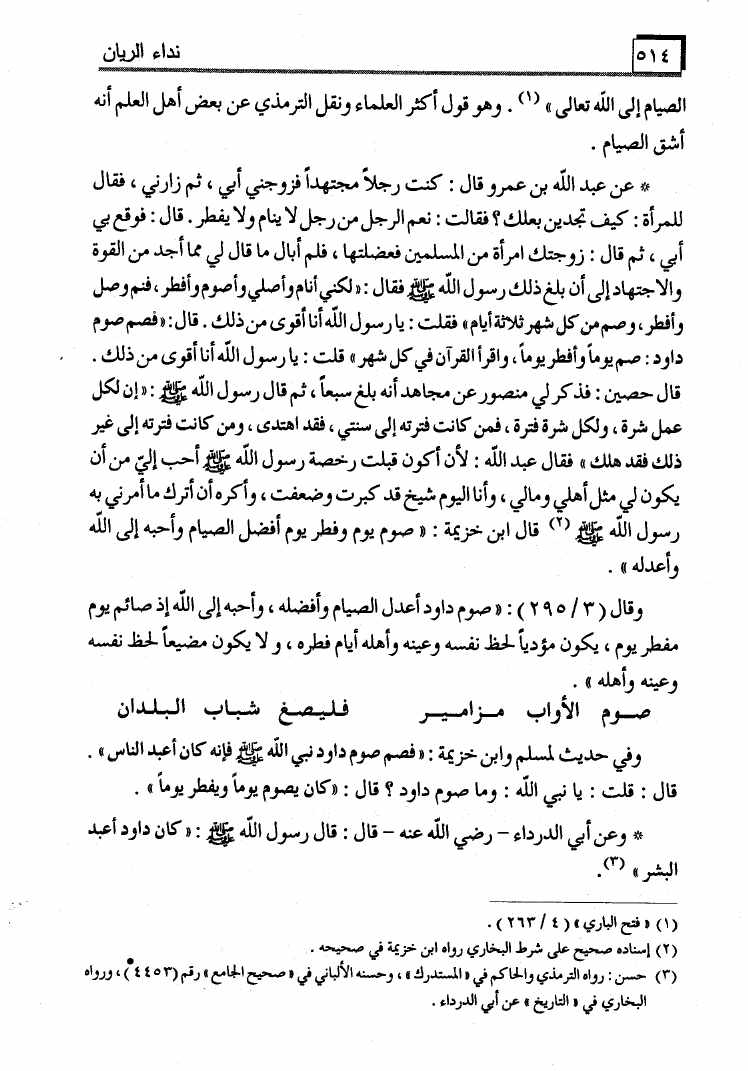 ٥١٤ نداء الريان
الصيام إلى الله تعالى » (١) . وهو قول أكثر العلماء ونقل الترمذي عن بعض أهل العلم أنه
أشق الصيام .
* عن عبد الله بن عمرو قال : كنت رجلاً مجتهداً فزوجني أبي ، ثم زارني ، فقال
للمرأة : كيف تجدين بعلك ؟ فقالت : نعم الرجل من رجل لا ينام ولا يفطر . قال : فوقع بي
أبي ، ثم قال : زوجتك امرأة من المسلمين فعضلتها ، فلم أبال ما قال لي مما أجد من القوة
والاجتهاد إلى أن بلغ ذلك رسول الله ﷺ فقال : « لكني أنام وأصلي وأصوم وأفطر ، فنم وصل
وأفطر ، وصم من كل شهر ثلاثة أيام » فقلت : يا رسول الله أنا أقوى من ذلك . قال : « فصم صوم
داود : صم يوماً وأفطر يوماً ، واقرأ القرآن في كل شهر » قلت : يا رسول الله أنا أقوى من ذلك .
قال حصين : فذكر لي منصور عن مجاهد أنه بلغ سبعاً ، ثم قال رسول الله ﷺ : « إن لكل
عمل شرة ، ولكل شرة فترة ، فمن كانت فترته إلى سنتي ، فقد اهتدى ، ومن كانت فترته إلى غير
ذلك فقد هلك » فقال عبد الله : لأن أكون قبلت رخصة رسول الله ﷺ أحب إليّ من أن
يكون لي مثل أهلي ومالي ، وأنا اليوم شيخ قد كبرت وضعفت ، وأكره أن أترك ما أمرني به
رسول الله ﷺ (٢) قال ابن خزيمة : « صوم يوم وفطر يوم أفضل الصيام وأحبه إلى الله
وأعدله » .
وقال (٣/ ٢٩٥) : « صوم داود أعدل الصيام وأفضله ، وأحبه إلى الله إذ صائم يوم
مفطر يوم ، يكون مؤدياً لحظ نفسه وعينه وأهله أيام فطره ، و لا يكون مضيعاً لحظ نفسه
وعينه وأهله » .
صوم الأواب مزاميـر فليصغ شباب البلدان
وفي حديث لمسلم وابن خزيمة : « فصم صوم داود نبي الله ﷺ فإنه كان أعبد الناس » .
قال : قلت : يا نبي الله : وما صوم داود ؟ قال : « كان يصوم يوماً ويفطر يوماً » .
* وعن أبي الدرداء – رضي الله عنه – قال : قال رسول الله ﷺ : « كان داود أعبد
البشر » (٣).
(١) « فتح الباري » ( ٤/ ٢٦٣ ) .
(٢) إسناده صحيح على شرط البخاري رواه ابن خزيمة في صحيحه .
(٣) حسن : رواه الترمذي والحاكم في « المستدرك » ، وحسنه الألباني في « صحيح الجامع » رقم (٤٤٥٣) ، ورواه
البخاري في « التاريخ » عن أبي الدرداء .